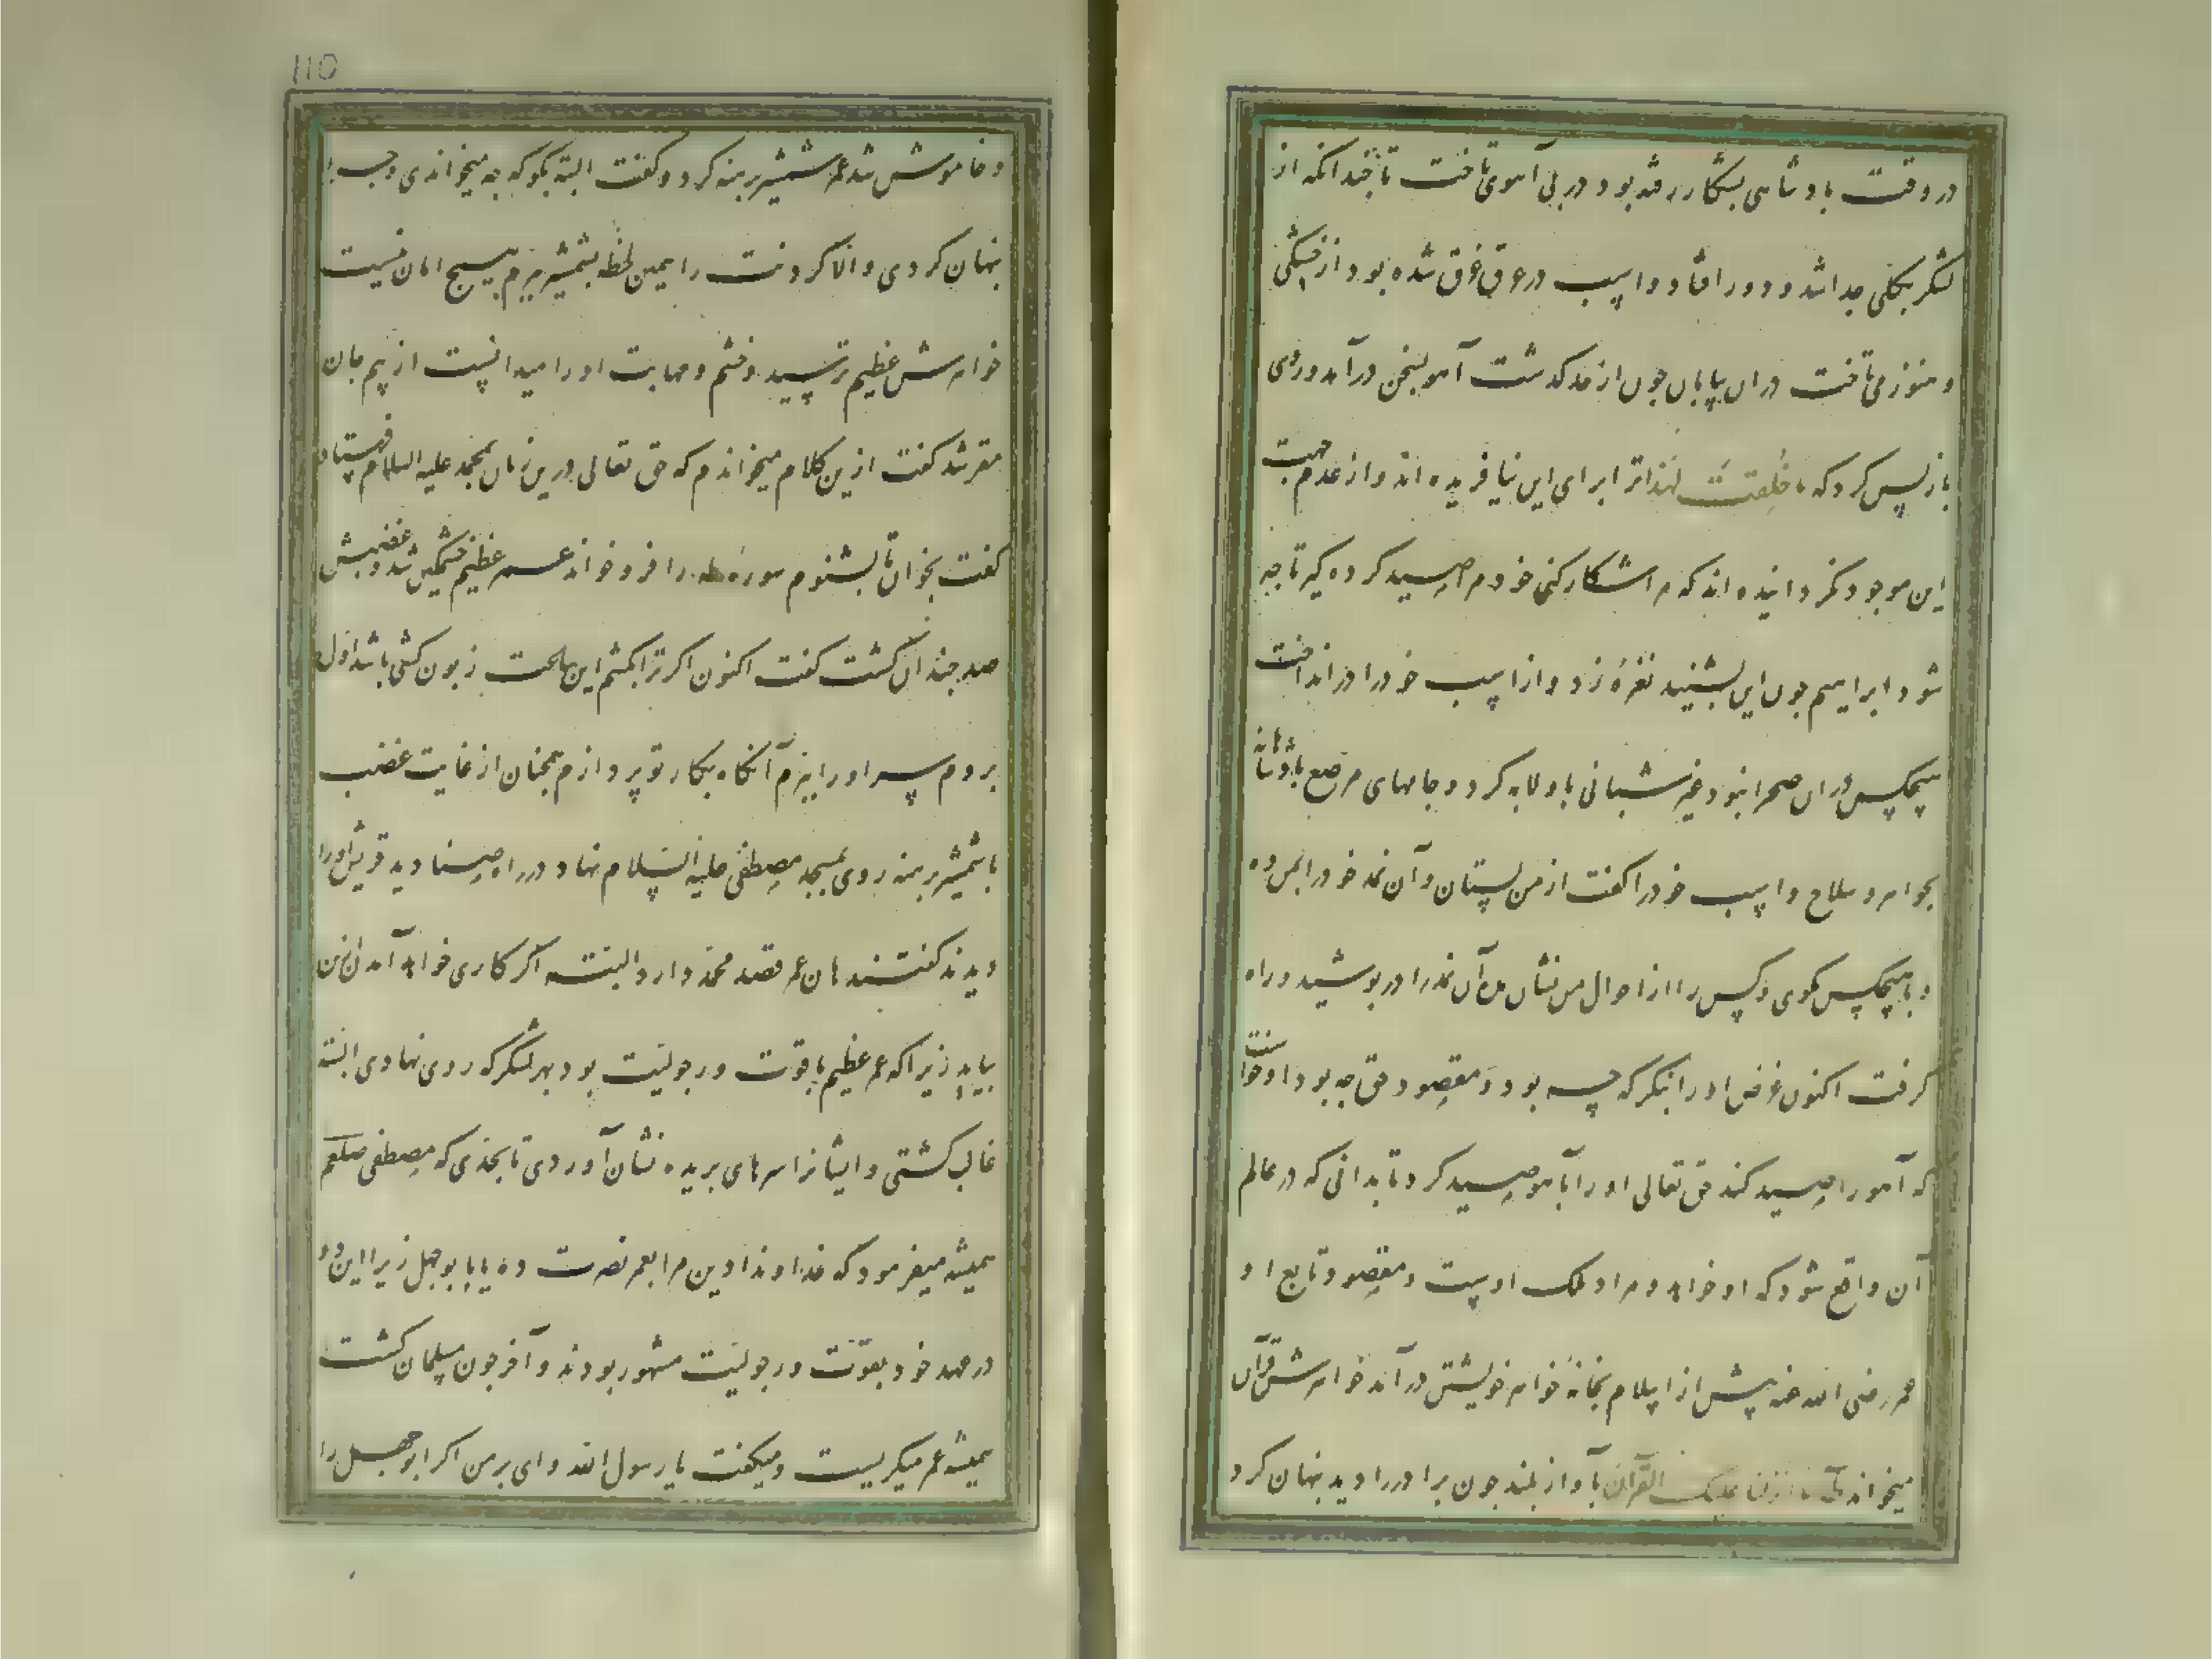 در وقت بادشاهی بشکار رفته بود در پی آهوی تاخت تا چندانکه از
لشکر بکلی جدا شد و دور افتاد و اسپ در عرق غرق شده بود از خستگی
و هنوز می تاخت در ان بیابان چون از حد گذشت آهو بسخن درآمد و روی
باز پس کرد که ما خلقت لهذا ترا برای این نیافریده اند و از عدم جهت
این موجود نگردانیده اند که مرا شکار کنی خود مرا صید کرده گیر تا چه
شود ابراهیم چون این بشنید نعرهٔ زد و از اسپ خود را در انداخت
هیچکس در ان صحرا نبود غیر شبانی با و لابه کرد و جامهای مرصع بادشاهانه
بجواهر و سلاح و اسپ خود را گفت از من بستان و آن نمد خود را بمن ده
و با هیچکس مگوی و کس را از احوال من نشان مده آن نمد را در پوشید و راه
گرفت اکنون غرض او را بنگر که چه بود و مقصود حق چه بود او خواست
که آهو را صید کند حق تعالی او را بآهو صید کرد تا بدانی که در عالم
آن واقع شود که او خواهد و مراد ملک اوست و مقصود تابع او
عمر رضی الله عنه پیش از اسلام بخانهٔ خواهر خویشتن درآمد خواهرش قرآن
میخواند طه ما انزلنا علیک القرآن بآواز بلند چون برادر را دید پنهان کرد
110
و خاموش شد عمر شمشیر برهنه کرد و گفت البته بگو که چه میخواندی و چرا
پنهان کردی و الا گردنت را همین لحظه بشمشیر ببرم هیچ امان نیست
خواهرش عظیم ترسید و خشم و مهابت او را میدانست از بیم جان
مقر شد گفت ازین کلام میخواندم که حق تعالی درین زمان بمحمد علیه السلام فرستاد
گفت بخوان تا بشنوم سوره طه را فرو خواند عمر عظیم خشمگین شد و غضبش
صد چندان گشت گفت اکنون اگر ترا بکشم این ساعت زبون کشی باشد اول
بروم سر او را ببرم آنگاه بکار تو پردازم همچنان از غایت غضب
با شمشیر برهنه روی بمسجد مصطفی علیه السلام نهاد در راه صنادید قریش او را
دیدند گفتند هان عمر قصد محمد دارد و البته اگر کاری خواهد آمدن ازین
بیاید زیرا که عمر عظیم با قوت و رجولیت بود بهر لشکر که روی نهادی البته
غالب گشتی و ایشانرا سرهای بریده نشان آوردی تا بحدی که مصطفی صلعم
همیشه میفرمود که خداوندا دین مرا بعمر نصرت ده یا بابوجهل زیرا این دو
در عهد خود بقوت و رجولیت مشهور بودند و آخر چون مسلمان گشت
همیشه عمر میگریست و میگفت یا رسول الله وای بر من اگر ابوجهل را